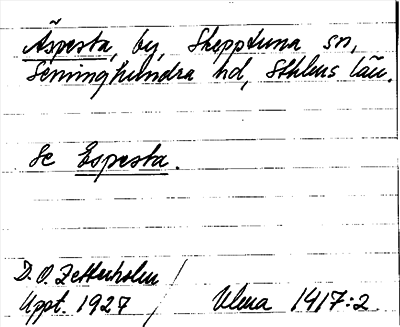 Äspesta, by, Skepptuna sn,
Seminghundra hd, Sthlms län.
Se Espesta.
D. O. Zetterholm /
Uppt. 1927 / Ulma 1417:2.